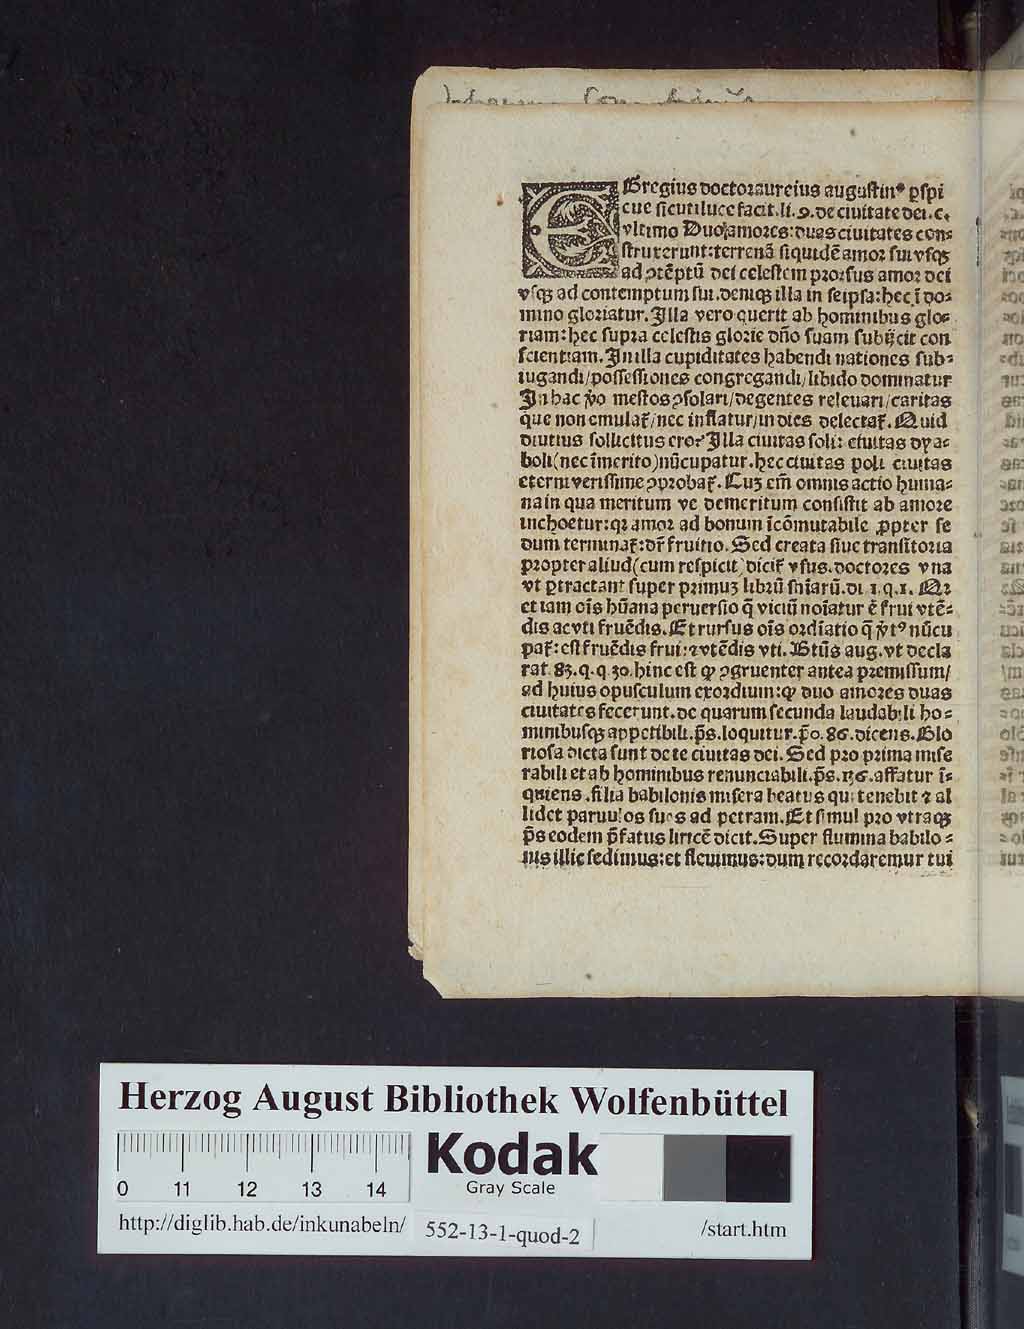 EGregius doctor aureius augustinꝰ ꝑspi
cue sicuti luce facit.li.9.de ciuitate dei.c.
vltimo Duo amores:duas ciuitates con⸗
struxerunt:terrenā siquidē amor sui vsqꝫ
ad ꝯtēptū dei celestem prorsus amor dei
vsqꝫ ad contemptum sui.deniqꝫ illa in seipsa:hec ī do⸗
mino gloriatur.Illa vero querit ab hominibus glo⸗
riam:hec supra celestis glorie dn̄o suam subijcit con
scientiam.In illa cupiditates habendi nationes sub⸗
iugandi/possessiones congregandi/libido dominatur
In hac ꝟo mestos ꝯsolari/degentes releuari/caritas
que non emulat᷑/nec inflatur/in dies delectat᷑.Quid
diutius sollicitus ero?Illa ciuitas soli: ciuitas dya⸗
boli(nec īmerito)nūcupatur.hec ciuitas poli ciuitas
eterni verissime ꝯprobat᷑.Cuꝫ em̄ omnis actio huma⸗
na in qua meritum ve demeritum consistit ab amore
inchoetur:qꝛ amor ad bonum īcōmutabile ꝓpter se
dum terminat᷑:dr̄ fruitio.Sed creata siue transitoria
propter aliud(cum respicit)dicit᷑ vsus.doctores vna
vt ꝑtractant super primuꝫ librū sniarū.di 1.q.1. Qꝛ
etiam oīs hūana peruersio q̄ viciū noīatur ē frui vtē⸗
dis ac vti fruēdis.Et rursus oīs ordīatio q̄ ꝟtꝰ nūcu
pat᷑:est fruēdis frui:⁊ vtēdis vti.Btūs aug.vt decla
rat.83.q.q 30.hinc est ꝙ ꝯgruenter antea premissum/
ad huius opusculum exordium:ꝙ duo amores duas
ciuitates fecerunt.de quarum secunda laudabili ho⸗
minibusqꝫ appetibili.p̄s.loquitur.p̄o.86.dicens.Glo
riosa dicta sunt de te ciuitas dei.Sed pro prima mise
rabili et ab hominibus renunciabili.p̄s.136.affatur ī⸗
quiens.filia babilonis misera beatus qui tenebit ⁊ al
lidet paruulos suos ad petram.Et simul pro vtraqꝫ
p̄s eodem p̄fatus liricē dicit.Super flumina babilo⸗
nis illic sedimus:et fleuimus:dum recordaremur tui
Herzog August Bibliothek Wolfenbüttel
Kodak
Gray Scale
0 11 12 13 14
http://diglib.hab.de/inkunabeln/ 552-13-1-quod-2 /start.htm